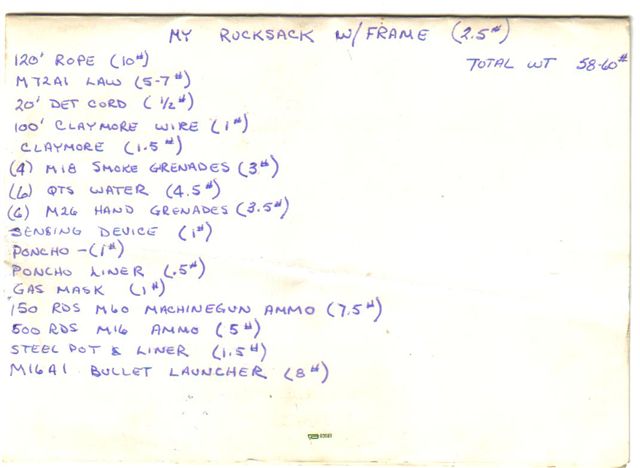 MY RUCKSACK W/FRAME (2.5#)
TOTAL WT 58-60#
120' ROPE (10#)
M72A1 LAW (5-7#)
20' DET CORD (1/2#)
100' CLAYMORE WIRE (1#)
CLAYMORE (1.5#)
(4) M18 SMOKE GRENADES (3#)
(6) QTS WATER (4.5#)
(6) M26 HAND GRENADES (3.5#)
SENSING DEVICE (1#)
PONCHO -(1#)
PONCHO LINER (.5#)
GAS MASK (1#)
150 RDS M60 MACHINEGUN AMMO (7.5#)
500 RDS M16 AMMO (5#)
STEEL POT & LINER (1.5#)
M16A1 BULLET LAUNCHER (8#)